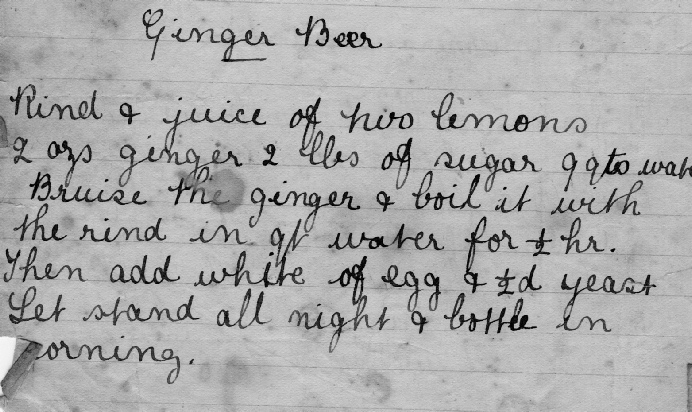 Ginger Beer
Rind & juice of two lemons
2 ozs ginger 2 lbs of sugar 9 qts wat
Bruise the ginger & boil it with
the rind in qt water for ½ hr.
Then add white of egg & ½d yeast
Let stand all night & bottle in
orning.